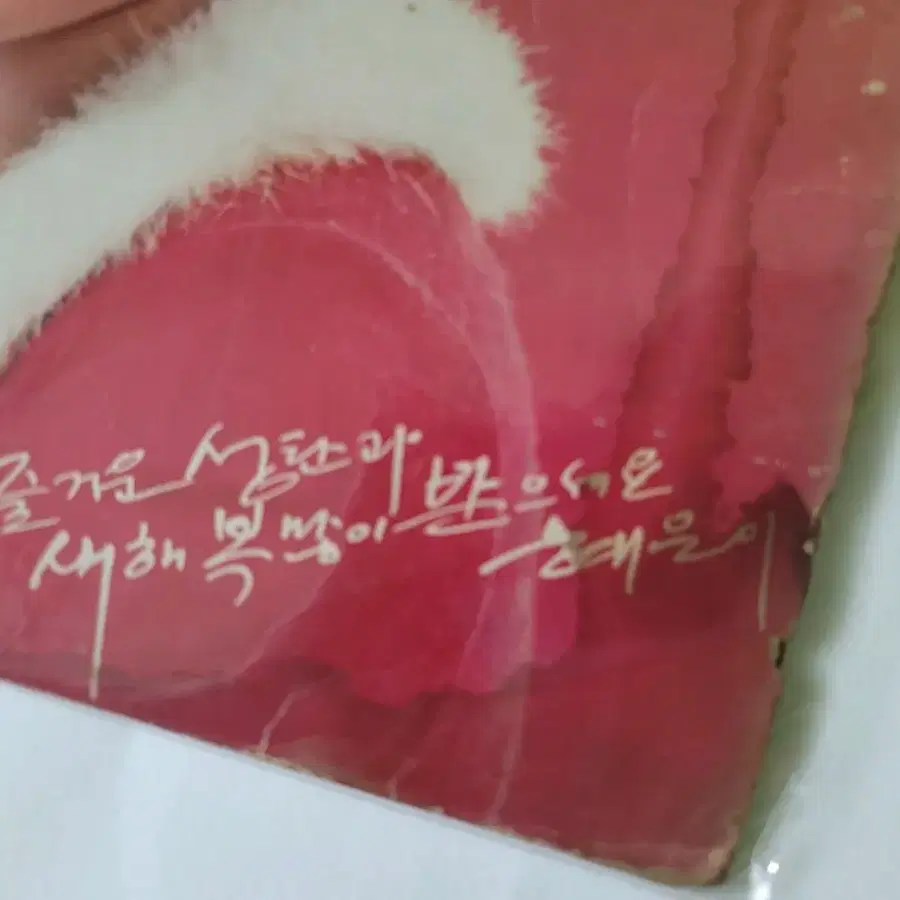 즐거운 성탄과
새해 복 많이 받으세요
혜은이